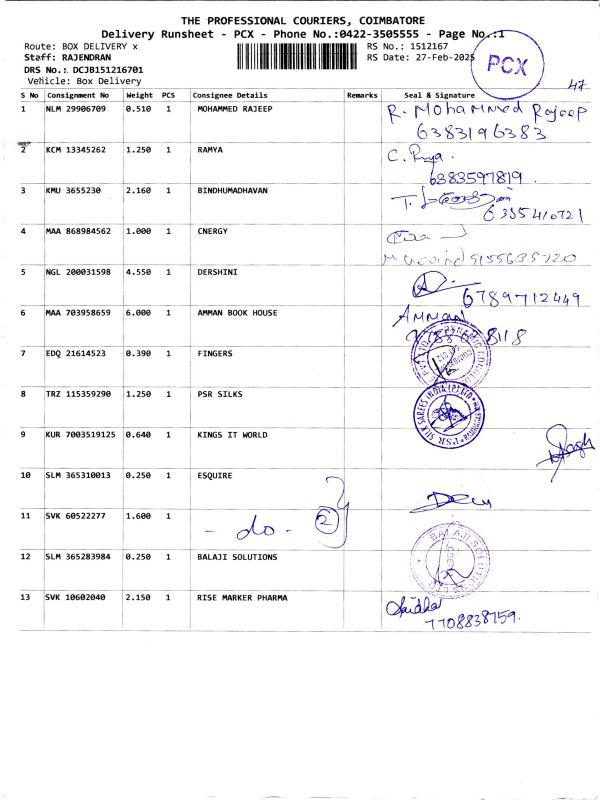 THE PROFESSIONAL COURIERS, COIMBATORE
Delivery Runsheet - PCX - Phone No.:0422-3505555 - Page No.:1
Route: BOX DELIVERY x RS No.: 1512167
Staff: RAJENDRAN RS Date: 27-Feb-2025
DRS No.: DCJB151216701
Vehicle: Box Delivery
PCX
47
S No Consignment No Weight PCS Consignee Details Remarks Seal & Signature
1 NLM 29906709 0.510 1 MOHAMMED RAJEEP R. Mohammed Rajeep
6383196383
2 KCM 13345262 1.250 1 RAMYA C.
6383597819.
3 KMU 3655230 2.160 1 BINDHUMADHAVAN T.
6335410721
4 MAA 868984562 1.000 1 CNERGY
9155635720
5 NGL 200031598 4.550 1 DERSHINI
6789712449
6 MAA 703958659 6.000 1 AMMAN BOOK HOUSE AMMAN
8118
7 EDQ 21614523 0.390 1 FINGERS
8 TRZ 115359290 1.250 1 PSR SILKS PSR SILK SAREES INDIA (P) LTD
9 KUR 7003519125 0.640 1 KINGS IT WORLD
10 SLM 365310013 0.250 1 ESQUIRE
11 SVK 60522277 1.600 1 - do - 2
12 SLM 365283984 0.250 1 BALAJI SOLUTIONS BALAJI SOLUTIONS
13 SVK 10602040 2.150 1 RISE MARKER PHARMA
7708838759.